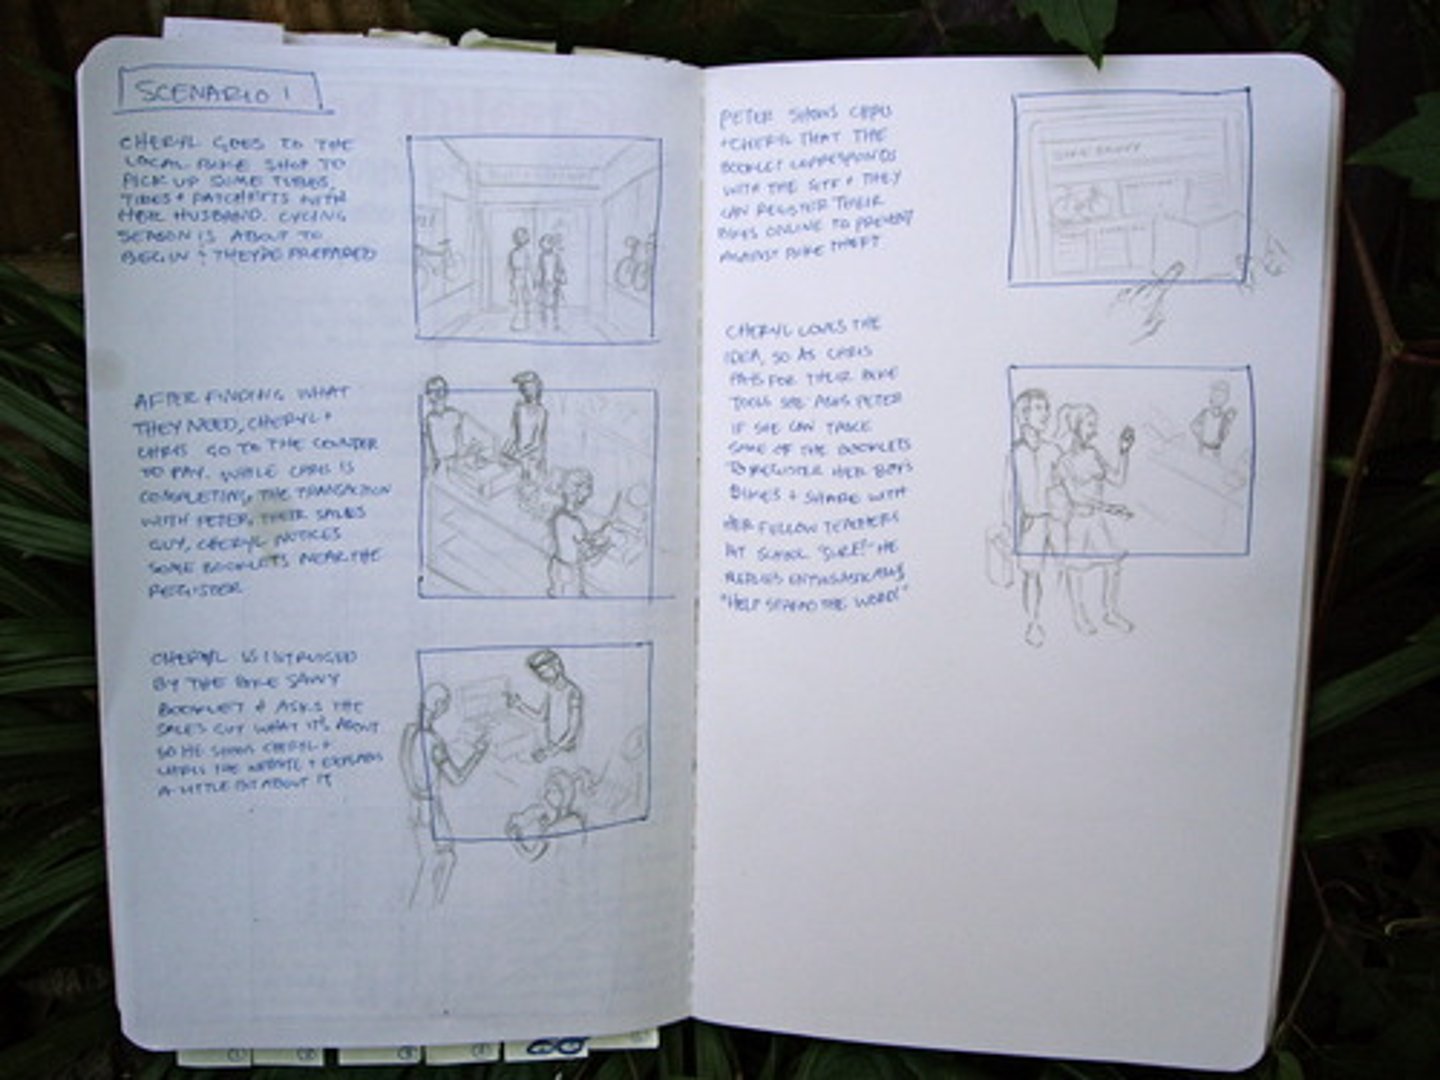 SCENARIO 1
CHERYL GOES TO THE
LOCAL BIKE SHOP TO
PICK UP SOME TUBES,
TIRES + PATCHKITS WITH
HER HUSBAND. CYCING
SEASON IS ABOUT TO
BEGIN + THEY'RE PREPARED
AFTER FINDING WHAT
THEY NEED, CHERYL +
CHRIS GO TO THE COUNTER
TO PAY. WHILE CHRIS IS
COMPLETING THE TRANSACTION
WITH PETER, THEIR SALES
GUY, CHERYL NOTICES
SOME BOOKLETS NEAR THE
REGISTER
CHERYL IS INTRUIGED
BY THE BIKE SAVVY
BOOKLET + ASKS THE
SALES GUY WHAT IT'S ABOUT
SO HE SHOWS CHERYL +
CHRIS THE WEBSITE + EXPLAINS
A LITTLE BIT ABOUT IT
PETER SHOWS CHRIS
+ CHERYL THAT THE
BOOKLET CORRESPONDS
WITH THE SITE + THEY
CAN REGISTER THEIR
BIKES ONLINE TO PREVENT
AGAINST BIKE THEFT
BIKE SAVVY
CHERYL LOVES THE
IDEA, SO AS CHRIS
PAYS FOR THEIR BIKE
TOOLS SHE ASKS PETER
IF SHE CAN TAKE
SOME OF THE BOOKLETS
TO REGISTER HER BOYS
BIKES + SHARE WITH
HER FELLOW TEACHERS
AT SCHOOL "SURE!" HE
REPLIES ENTHUSIASTICALLY
"HELP SPREAD THE WORD!"